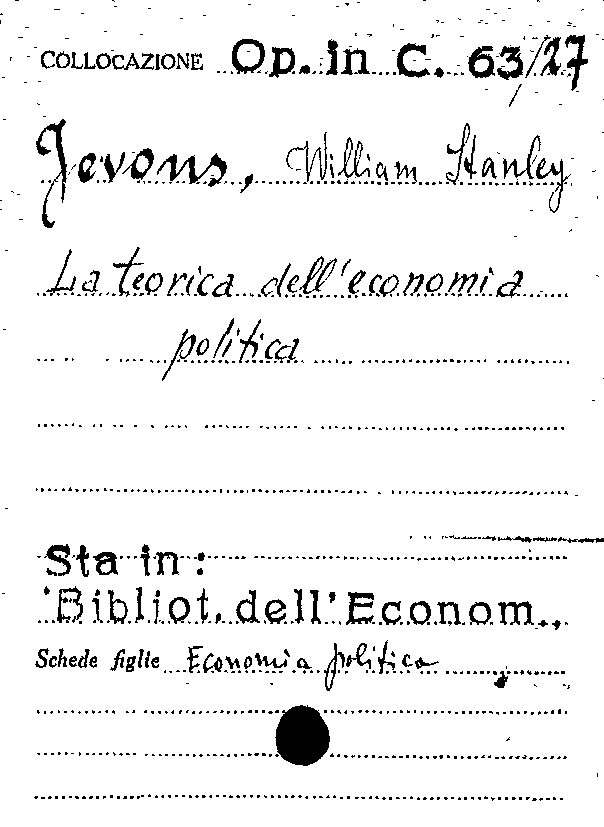 COLLOCAZIONE Op. in C. 63/27
Jevons, William Stanley
La teorica dell'economia
politica
Sta in:
Bibliot. dell'Econom.,
Schede figlie Economia politica